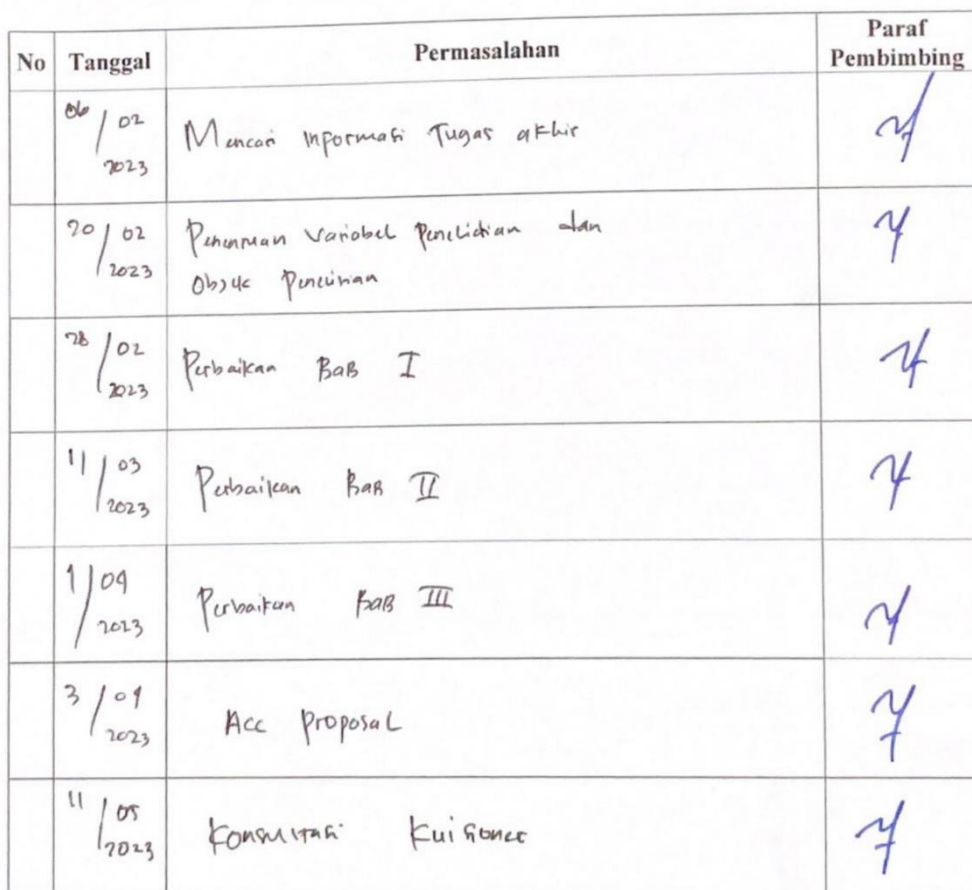 No Tanggal Permasalahan Paraf Pembimbing
06/02 2023 Mencari informasi Tugas akhir
20/02 2023 Penentuan Variabel Penelitian dan
Objek Penelitian
28/02 2023 Perbaikan BAB I
11/03 2023 Perbaikan BAB II
1/04 2023 Perbaikan BAB III
3/04 2023 Acc Proposal
11/05 2023 Konsultasi Kuisioner